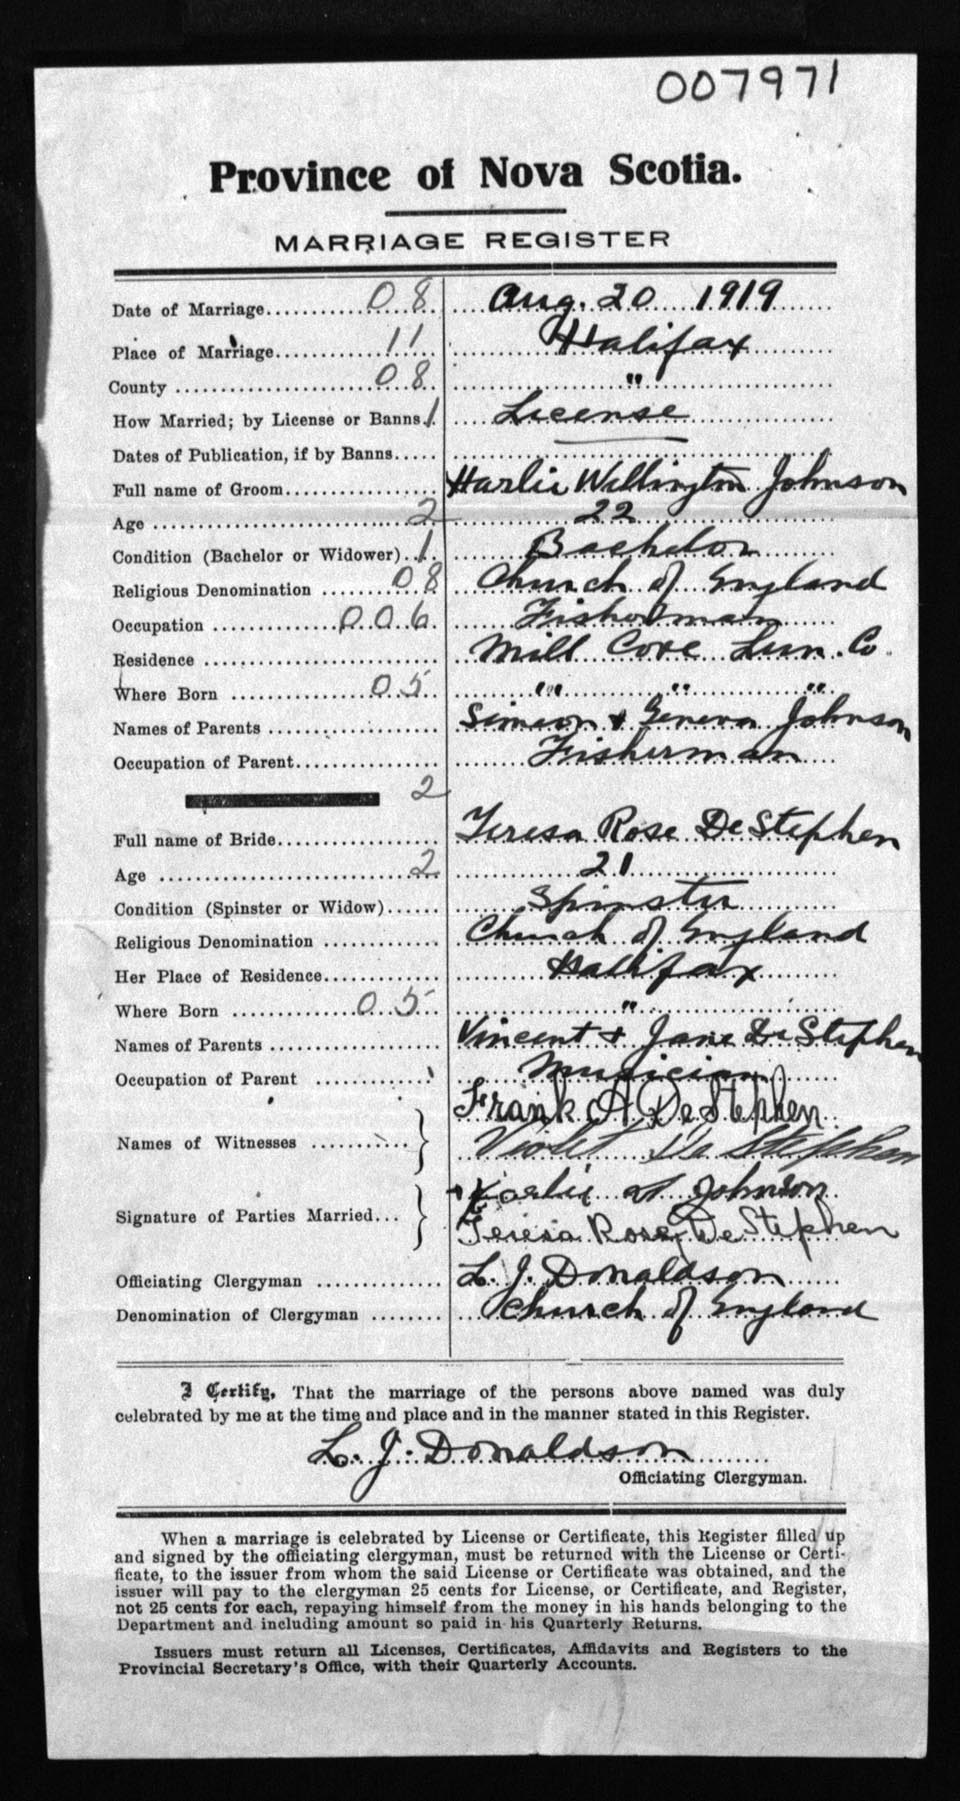 007971
Province of Nova Scotia.
MARRIAGE REGISTER
Date of Marriage 08 Aug. 20 1919
Place of Marriage 11 Halifax
County 08 "
How Married; by License or Banns 1 License
Dates of Publication, if by Banns
Full name of Groom Harlie Wellington Johnson
Age 2 22
Condition (Bachelor or Widower) 1 Bachelor
Religious Denomination 08 Church of England
Occupation 006 Fisherman
Residence Mill Cove Lun. Co.
Where Born 05 " " "
Names of Parents Simeon & Geneva Johnson
Occupation of Parent Fisherman
2
Full name of Bride Teresa Rose DeStephen
Age 2 21
Condition (Spinster or Widow) Spinster
Religious Denomination Church of England
Her Place of Residence Halifax
Where Born 05 "
Names of Parents Vincent & Jane DeStephen
Occupation of Parent Musician
Frank A DeStephen
Names of Witnesses Violet De Stephen
Harlie W Johnson
Signature of Parties Married Teresa Rose De Stephen
Officiating Clergyman L. J. Donaldson
Denomination of Clergyman Church of England
I Certify, That the marriage of the persons above named was duly
celebrated by me at the time and place and in the manner stated in this Register.
L. J. Donaldson
Officiating Clergyman.
When a marriage is celebrated by License or Certificate, this Register filled up
and signed by the officiating clergyman, must be returned with the License or Certi-
ficate, to the issuer from whom the said License or Certificate was obtained, and the
issuer will pay to the clergyman 25 cents for License, or Certificate, and Register,
not 25 cents for each, repaying himself from the money in his hands belonging to the
Department and including amount so paid in his Quarterly Returns.
Issuers must return all Licenses, Certificates, Affidavits and Registers to the
Provincial Secretary's Office, with their Quarterly Accounts.